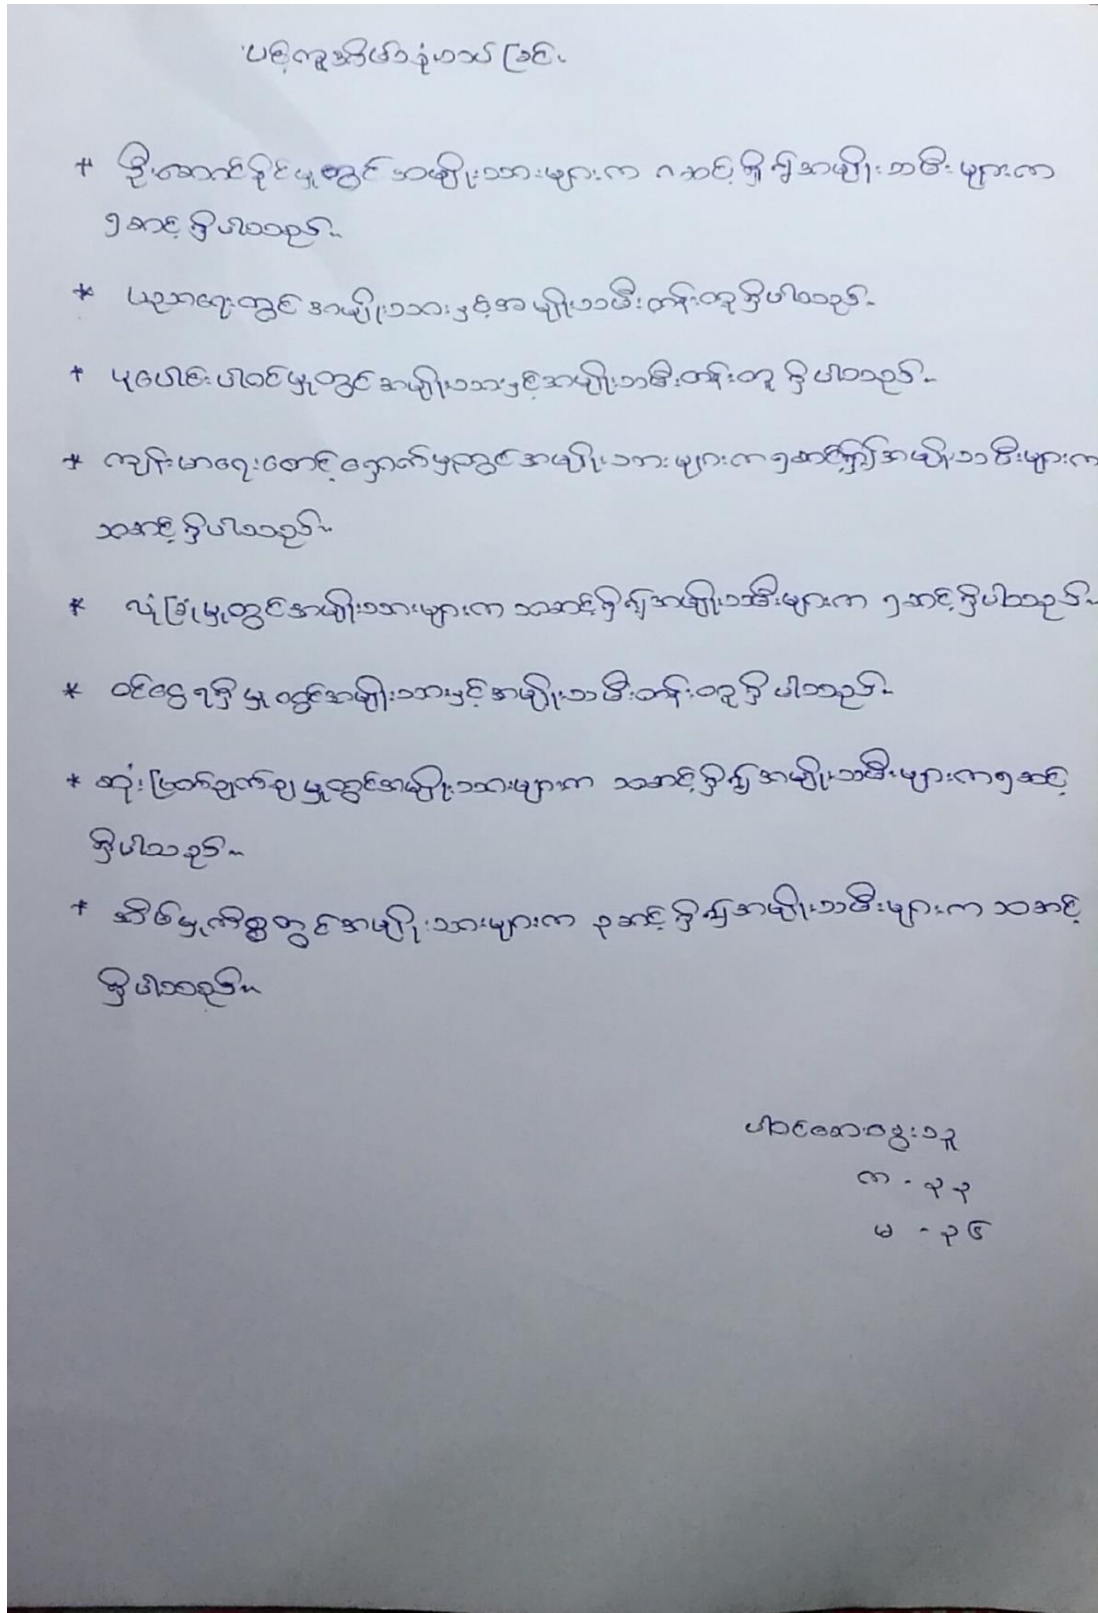 ပစ်ကူအိမ်ာနှံဟသ် ခြင်း
* ဦးဆောင်နိုင်မှုတွင် အမျိုးသားများက ၈ဆင့်ရှိ၍ အမျိုးသမီးများက
၅ဆင့်ရှိပါသည်။
* ပညာရေးတွင် အမျိုးသားနှင့်အမျိုးသမီးတန်းတူရှိပါသည်။
* ပူပေါင်းပါဝင်မှုတွင်အမျိုးသားနှင့်အမျိုးသမီးတန်းတူ ရှိပါသည်။
* ကျန်းမာရေးစောင့်ရှောက်မှုတွင်အမျိုးသားများက ၅ဆင့်ရှိ၍အမျိုးသမီးများက
သဆင့်ရှိပါသည်။
* လုံခြုံမှုတွင်အမျိုးသားများက သဆင့်ရှိ၍အမျိုးသမီးများက ၅ဆင့်ရှိပါသည်။
* ဝင်ငွေရရှိမှုတွင်အမျိုးသားနှင့်အမျိုးသမီးတန်းတူရှိပါသည်။
* ဆုံးဖြတ်ချက်ချမှုတွင်အမျိုးသားများက သဆင့်ရှိ၍အမျိုးသမီးများက၅ဆင့်
ရှိပါသည်။
* အိမ်မှုကိစ္စတွင်အမျိုးသားများက ၃ဆင့်ရှိ၍အမျိုးသမီးများက သဆင့်
ရှိပါသည်။
ပါဝင်ဆွေးနွေးသူ
က - ၃၃
မ - ၃၆